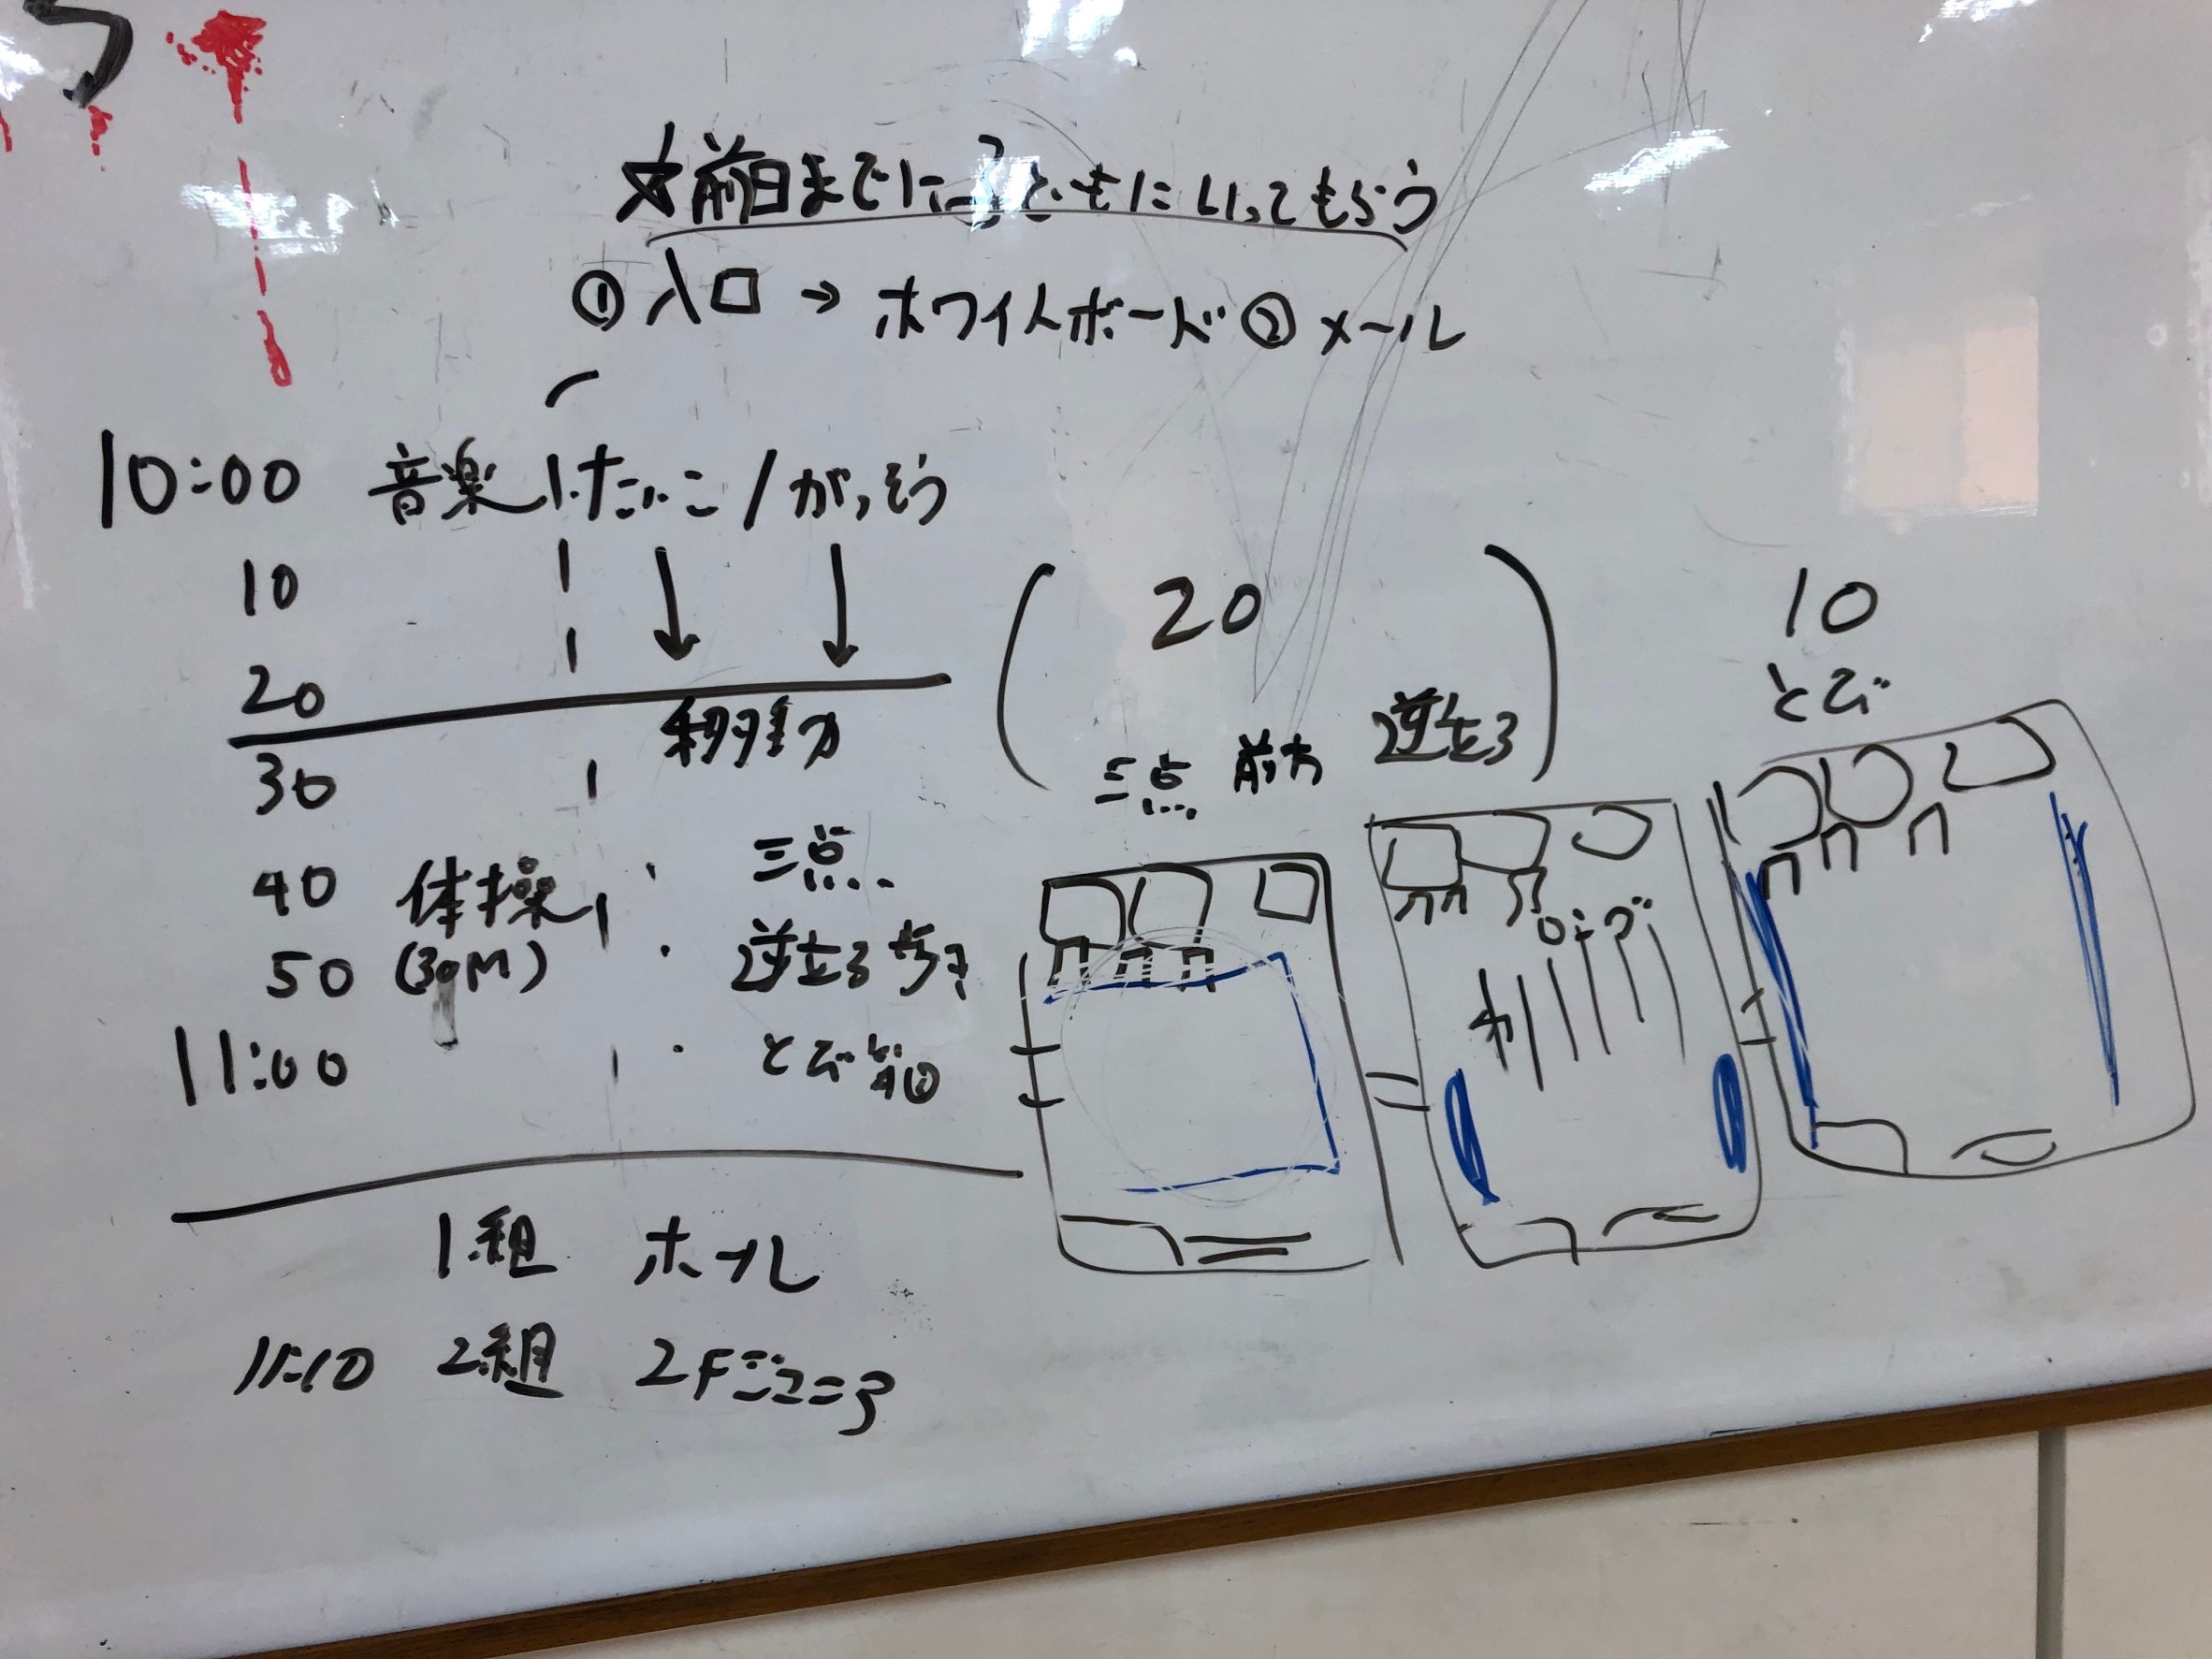 ☆前日までに子どもにいってもらう
①入口→ホワイトボード②メール
10:00 音楽 たいこ/がっそう
10
20
移動
30
40 体操 三点
50 (30M) 逆立ち歩き
11:00 とび箱
20
三点 前方 逆立ち
10
とび
ロング
1組 ホール
11:10 2組 2F